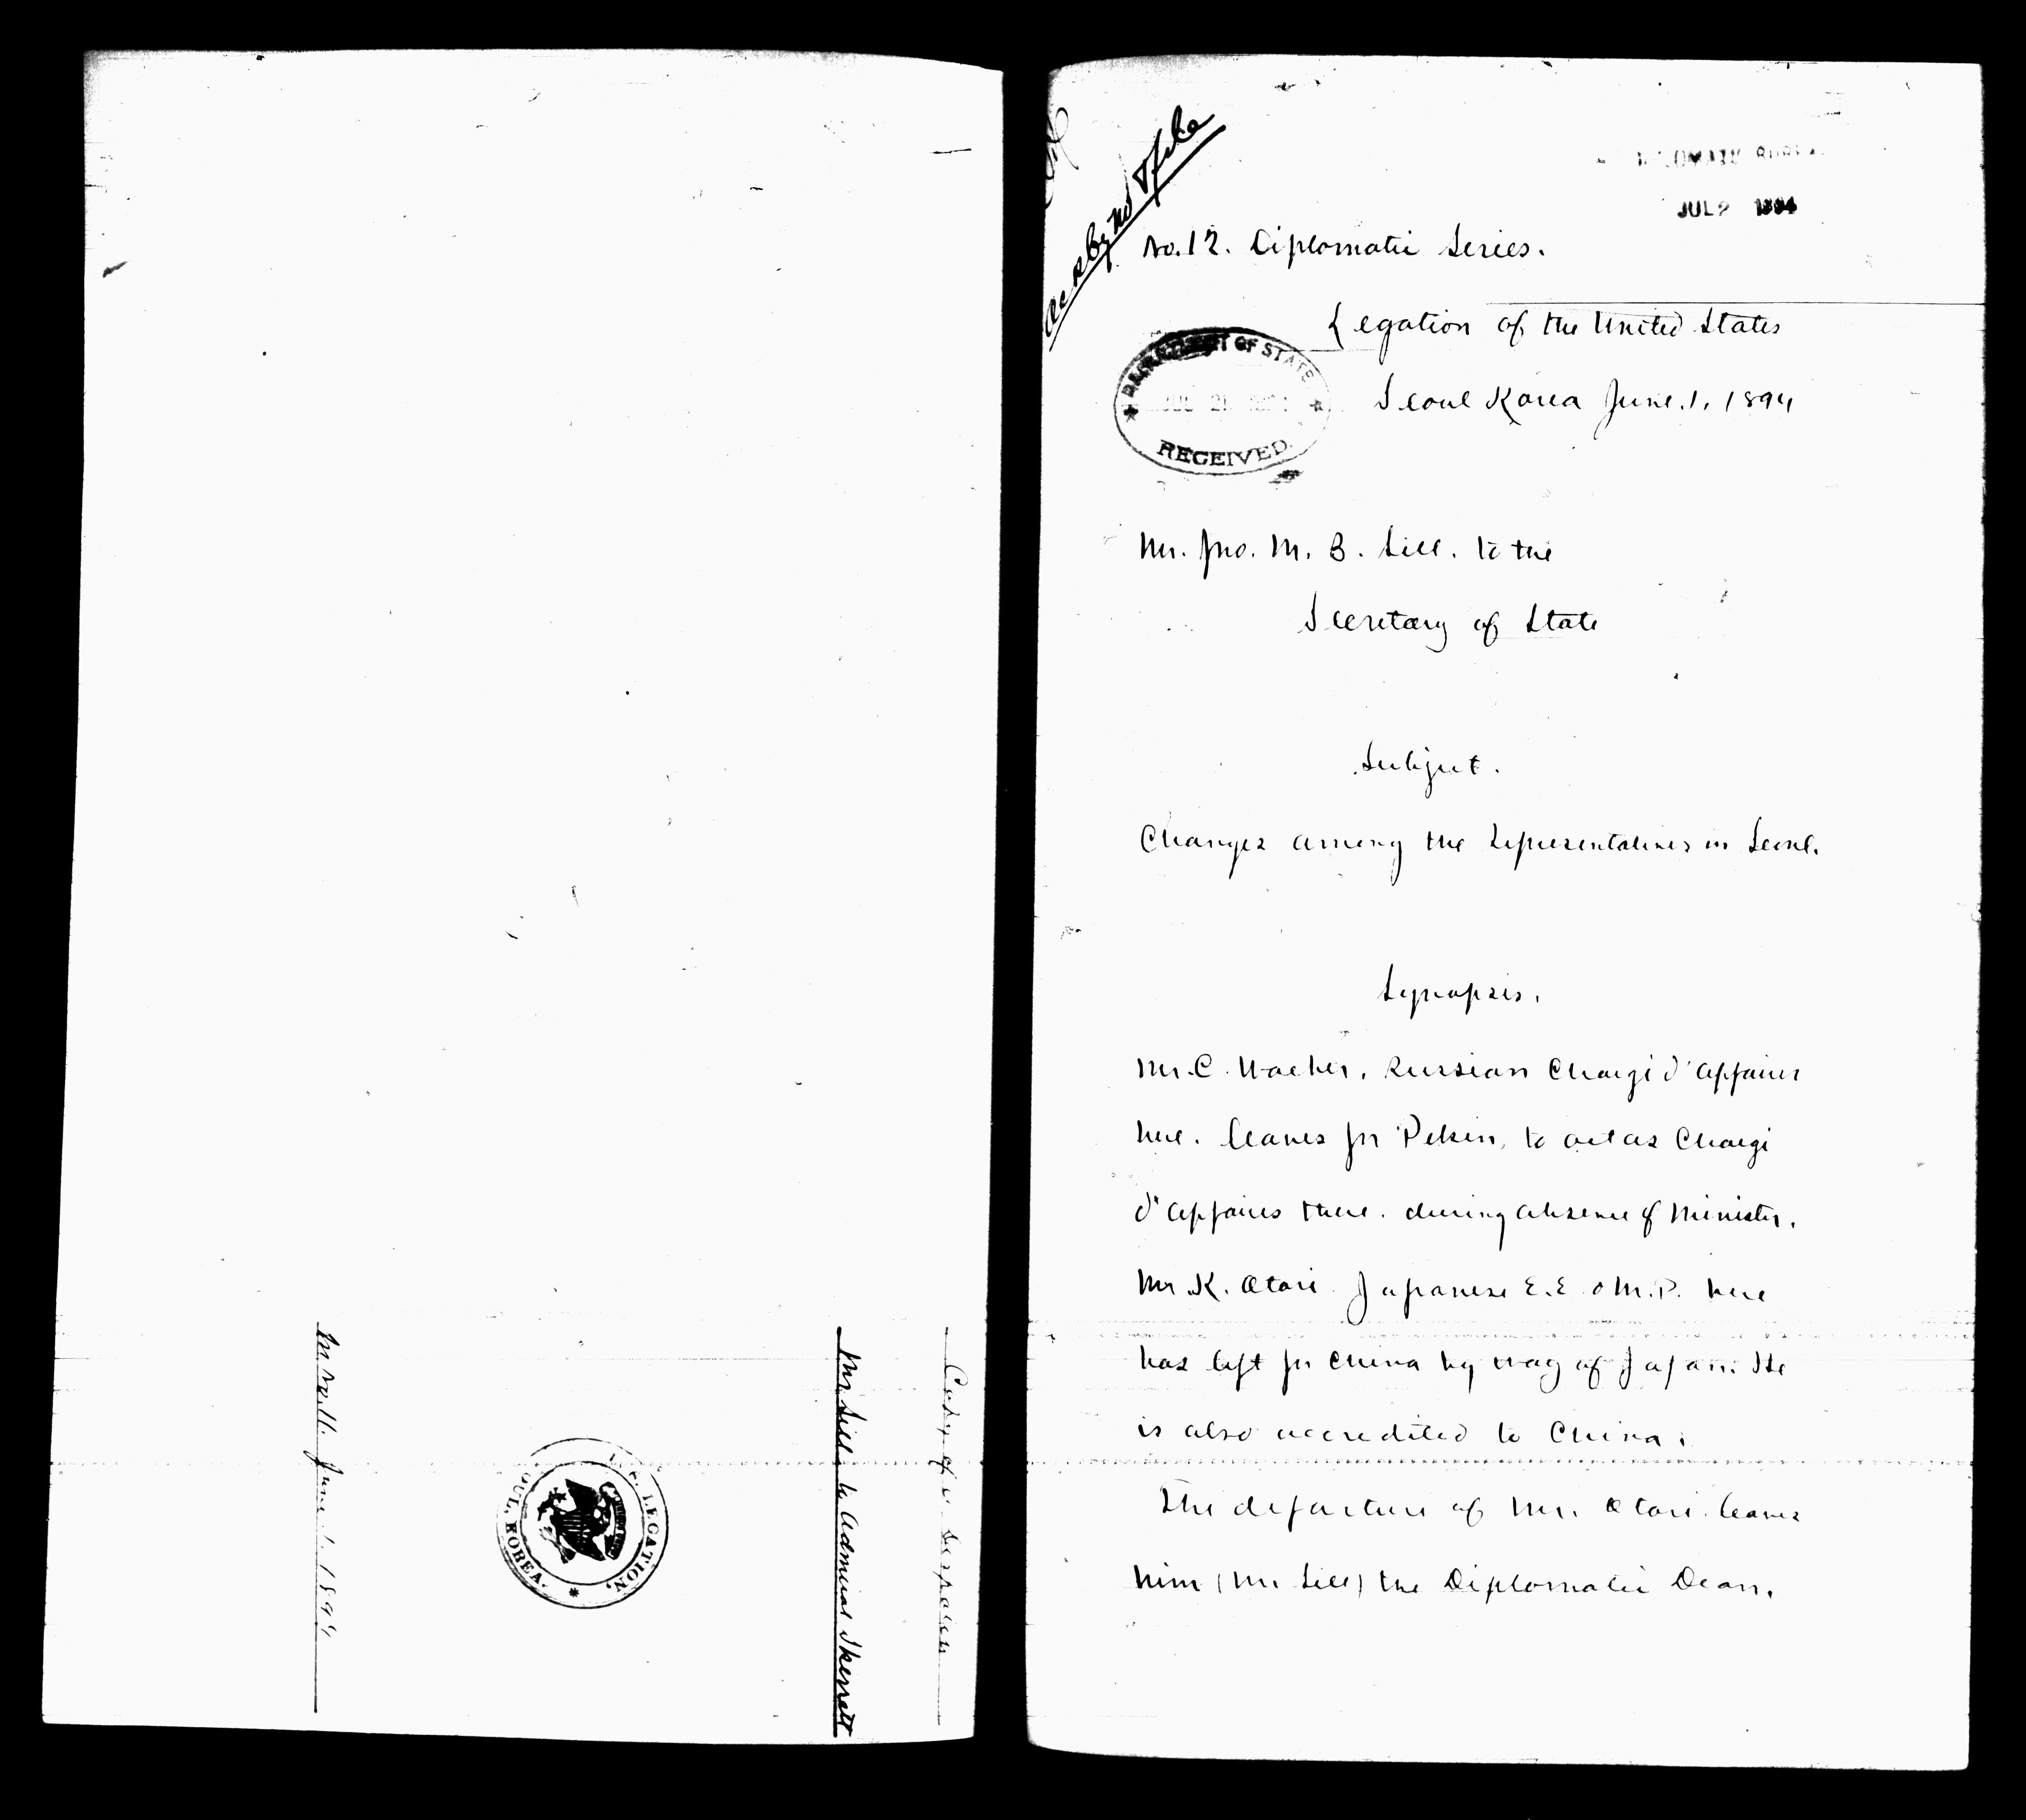 Copy of a despatch
Mr. Sill to Admiral Skerrett
U.S. LEGATION,
SEOUL, KOREA.
No. 11. June 1. 1894
Ack by No
File
DIPLOMATIC BUREAU
JUL 1894
No. 12. Diplomatic Series.
Legation of the United States
Seoul Korea June. 1. 1894
DEPARTMENT OF STATE
JUL 21 1894
RECEIVED
Mr. Jno. M. B. Sill. to the
Secretary of State
Subject.
Changes among the Representatives in Seoul.
Synopsis.
Mr. C. Waeber, Russian Chargé d'affaires
here. leaves for Pekin, to act as Chargé
d'affaires there. during absence of Minister.
Mr. K. Otori Japanese E.E. & M.P. here
has left for China by way of Japan. He
is also accredited to China.
The departure of Mr. Otori. leaves
him (Mr Sill) the Diplomatic Dean.